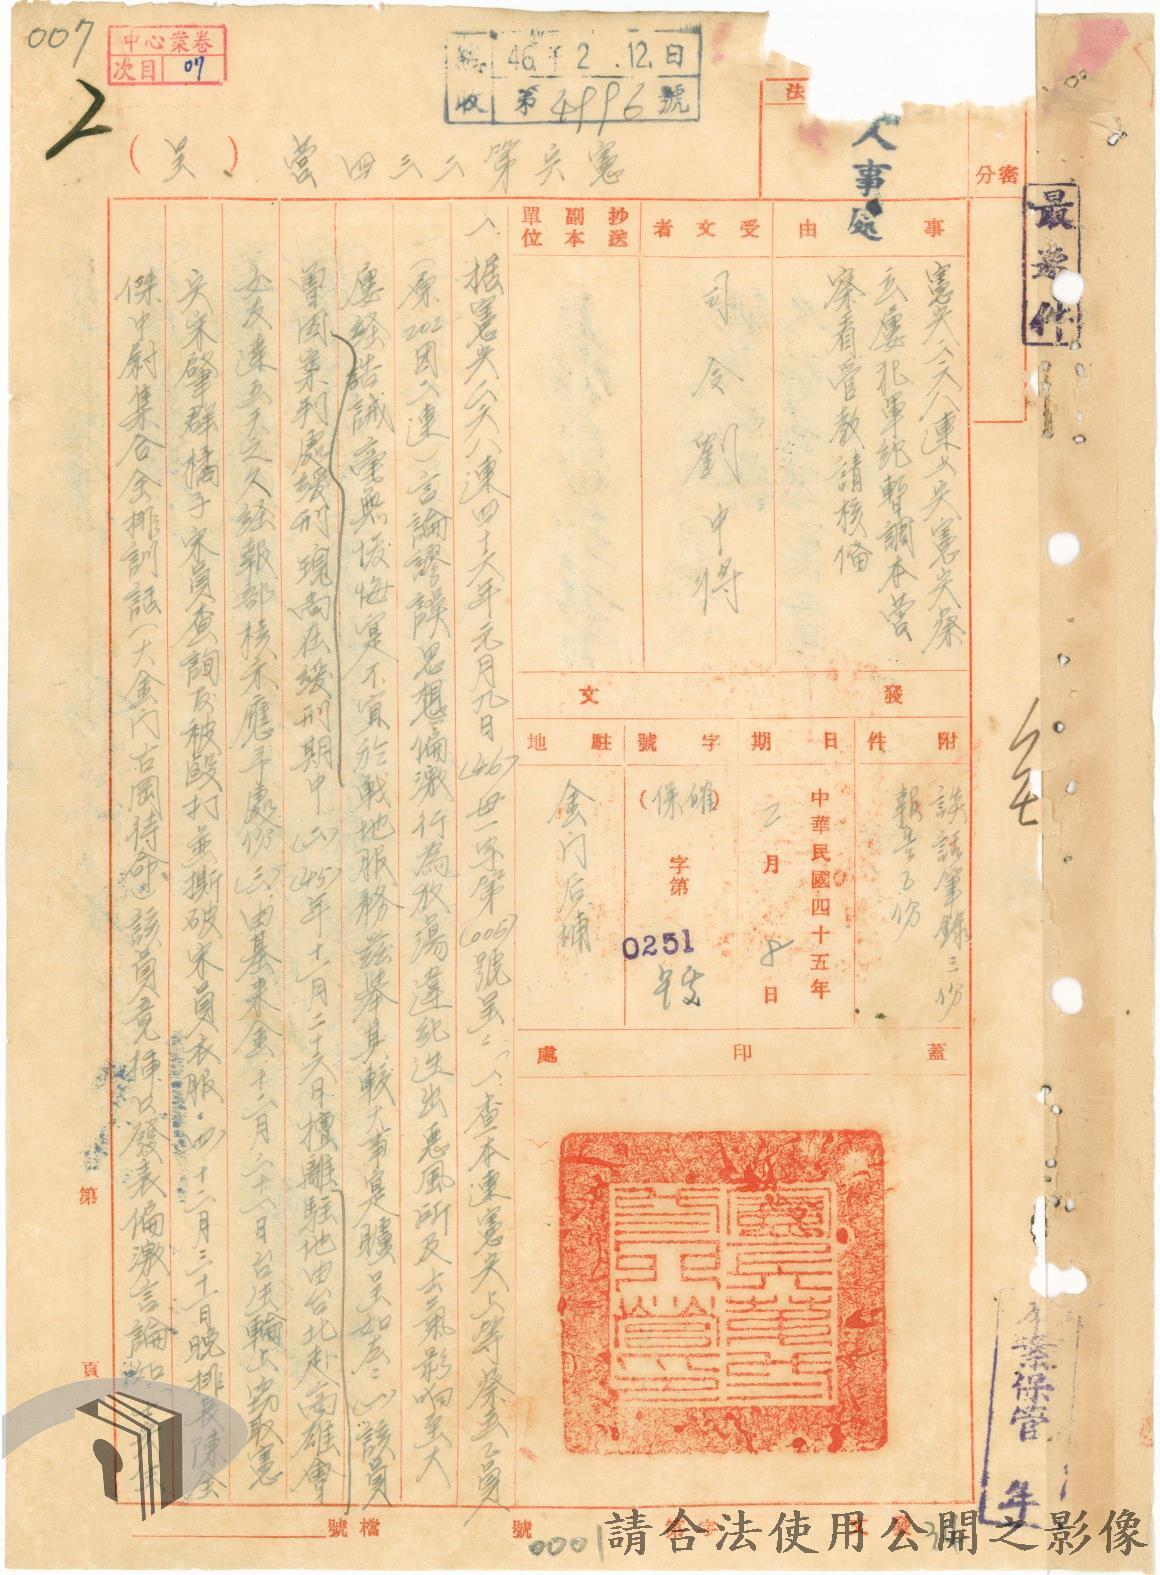 007
中心案卷
次目 07
2
總收 46年2.12.日
第4996號
人事處
最要件
密
分
法
憲兵第二三四營
(呈)
事由
憲兵八六八連上兵憲兵蔡
五屢犯軍紀暫調本營
察看管教請核備
受文者
司令劉中將
抄送副本單位
發文
附件
談話筆錄三份
報告五份
日期
中華民國四十五年
二月8日
字號
(確保)字第0251號
駐地
金门后埔
蓋印處
八、據憲兵八六八連四十六年元月九日(46)毌一字第(005)號呈:「八查本連憲兵上等蔡五乙員
(原202团八連)言論謬誤思想偏激行為放蕩違紀迭出惡風所及士氣影响至大
屢经誥誡毫無悛悔実不宜於戰地服務兹舉其較大事実臚呈如左:(一)該員
曾因案判處緩刑現尚在緩刑期中(二)(45)年十一月二十六日擅離駐地由台北赴高雄會
女友達五天之久经報部核示應予處份(三)由基来金十二月二十八日台生輪上窃取憲
兵宋肇群橘子宋員查詢反被毆打並撕破宋員衣服.(四)十二月三十一日晚排長陳金
傑中尉集合全排訓話(大金门古岡待命)該員竟揷口發表偏激言論
第
頁
檔號
號
0001
本案保管 年
請合法使用公開之影像